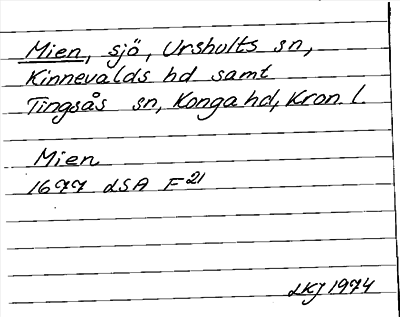 Mien, sjö, Urshults sn,
Kinnevalds hd samt
Tingsås sn, Konga hd, Kron. l.
Mien
1677 LSA F21
LKJ 1974